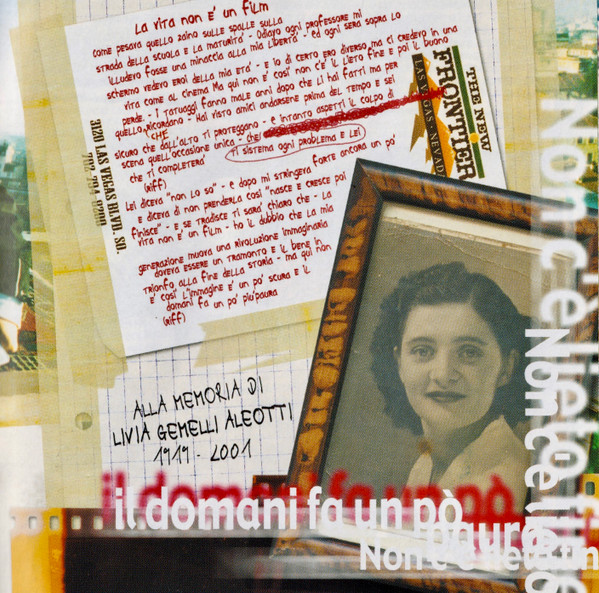 La vita non è un film
come pesava quello zaino sulle spalle sulla
strada della scuola e la maturità - Odiavo ogni professore mi
illudevo fosse una minaccia alla mia libertà - ed ogni sera sopra lo
schermo vedevo eroi della mia età - e lo di certo ero diverso ma ci credevo in una
vita come al cinema Ma qui non e' così non c'è il lieto fine e poi il buono
perde - I tatuaggi fanno male anni dopo che li hai fatti ma per
quello CHE ricordano - Hai visto amici andarsene prima del tempo e sei
sicuro che dall'alto ti proteggano - e intanto aspetti il colpo di
scena quell'occasione unica - che
che ti completerà
ti sistema ogni problema e lei
(riff)
Lei diceva "non lo so" - e dopo mi stringeva forte ancora un po'
e diceva di non prenderla così "nasce e cresce poi
finisce" - e se tradisce ti sarà chiaro che - la
vita non è un film - ho il dubbio che la mia
generazione muova una rivoluzione immaginaria
doveva essere un tramonto e il bene in
trionfo alla fine della storia - ma qui non
e' così L'immagine e' un po' scura e il
domani fa un po' più paura
(riff)
THE NEW
FRONTIER
LAS VEGAS - NEVADA
3120 LAS VEGAS BLVD. SO.
702 794 8200
ALLA MEMORIA DI
LIVIA GEMELLI ALEOTTI
1919 - 2001
il domani fa un pò
il domani fa un pò
paura
Non c'è lieto fin
Non c'è lieto fine
Non c'è lieto fine